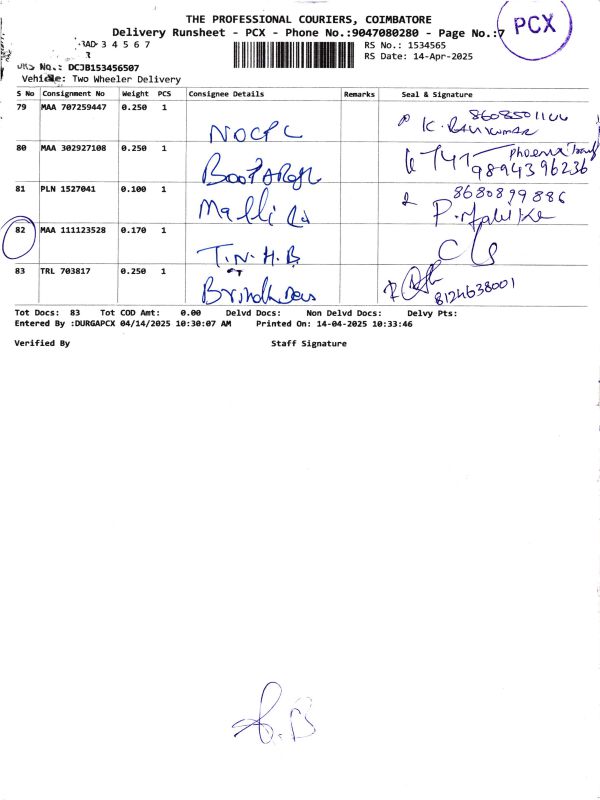 THE PROFESSIONAL COURIERS, COIMBATORE
Delivery Runsheet - PCX - Phone No.:9047080280 - Page No.:7
PCX
3 4 5 6 7
RS No.: 1534565
RS Date: 14-Apr-2025
No.: DCJB153456507
Vehicle: Two Wheeler Delivery
S No Consignment No Weight PCS Consignee Details Remarks Seal & Signature
79 MAA 707259447 0.250 1 NOCPC K.
80 MAA 302927108 0.250 1 Phoenix 9894396236
81 PLN 1527041 0.100 1 Malli 8680899886
82 MAA 111123528 0.170 1 T.N.H.B
83 TRL 703817 0.250 1 8124638001
Tot Docs: 83 Tot COD Amt: 0.00 Delvd Docs: Non Delvd Docs: Delvy Pts:
Entered By :DURGAPCX 04/14/2025 10:30:07 AM Printed On: 14-04-2025 10:33:46
Verified By Staff Signature